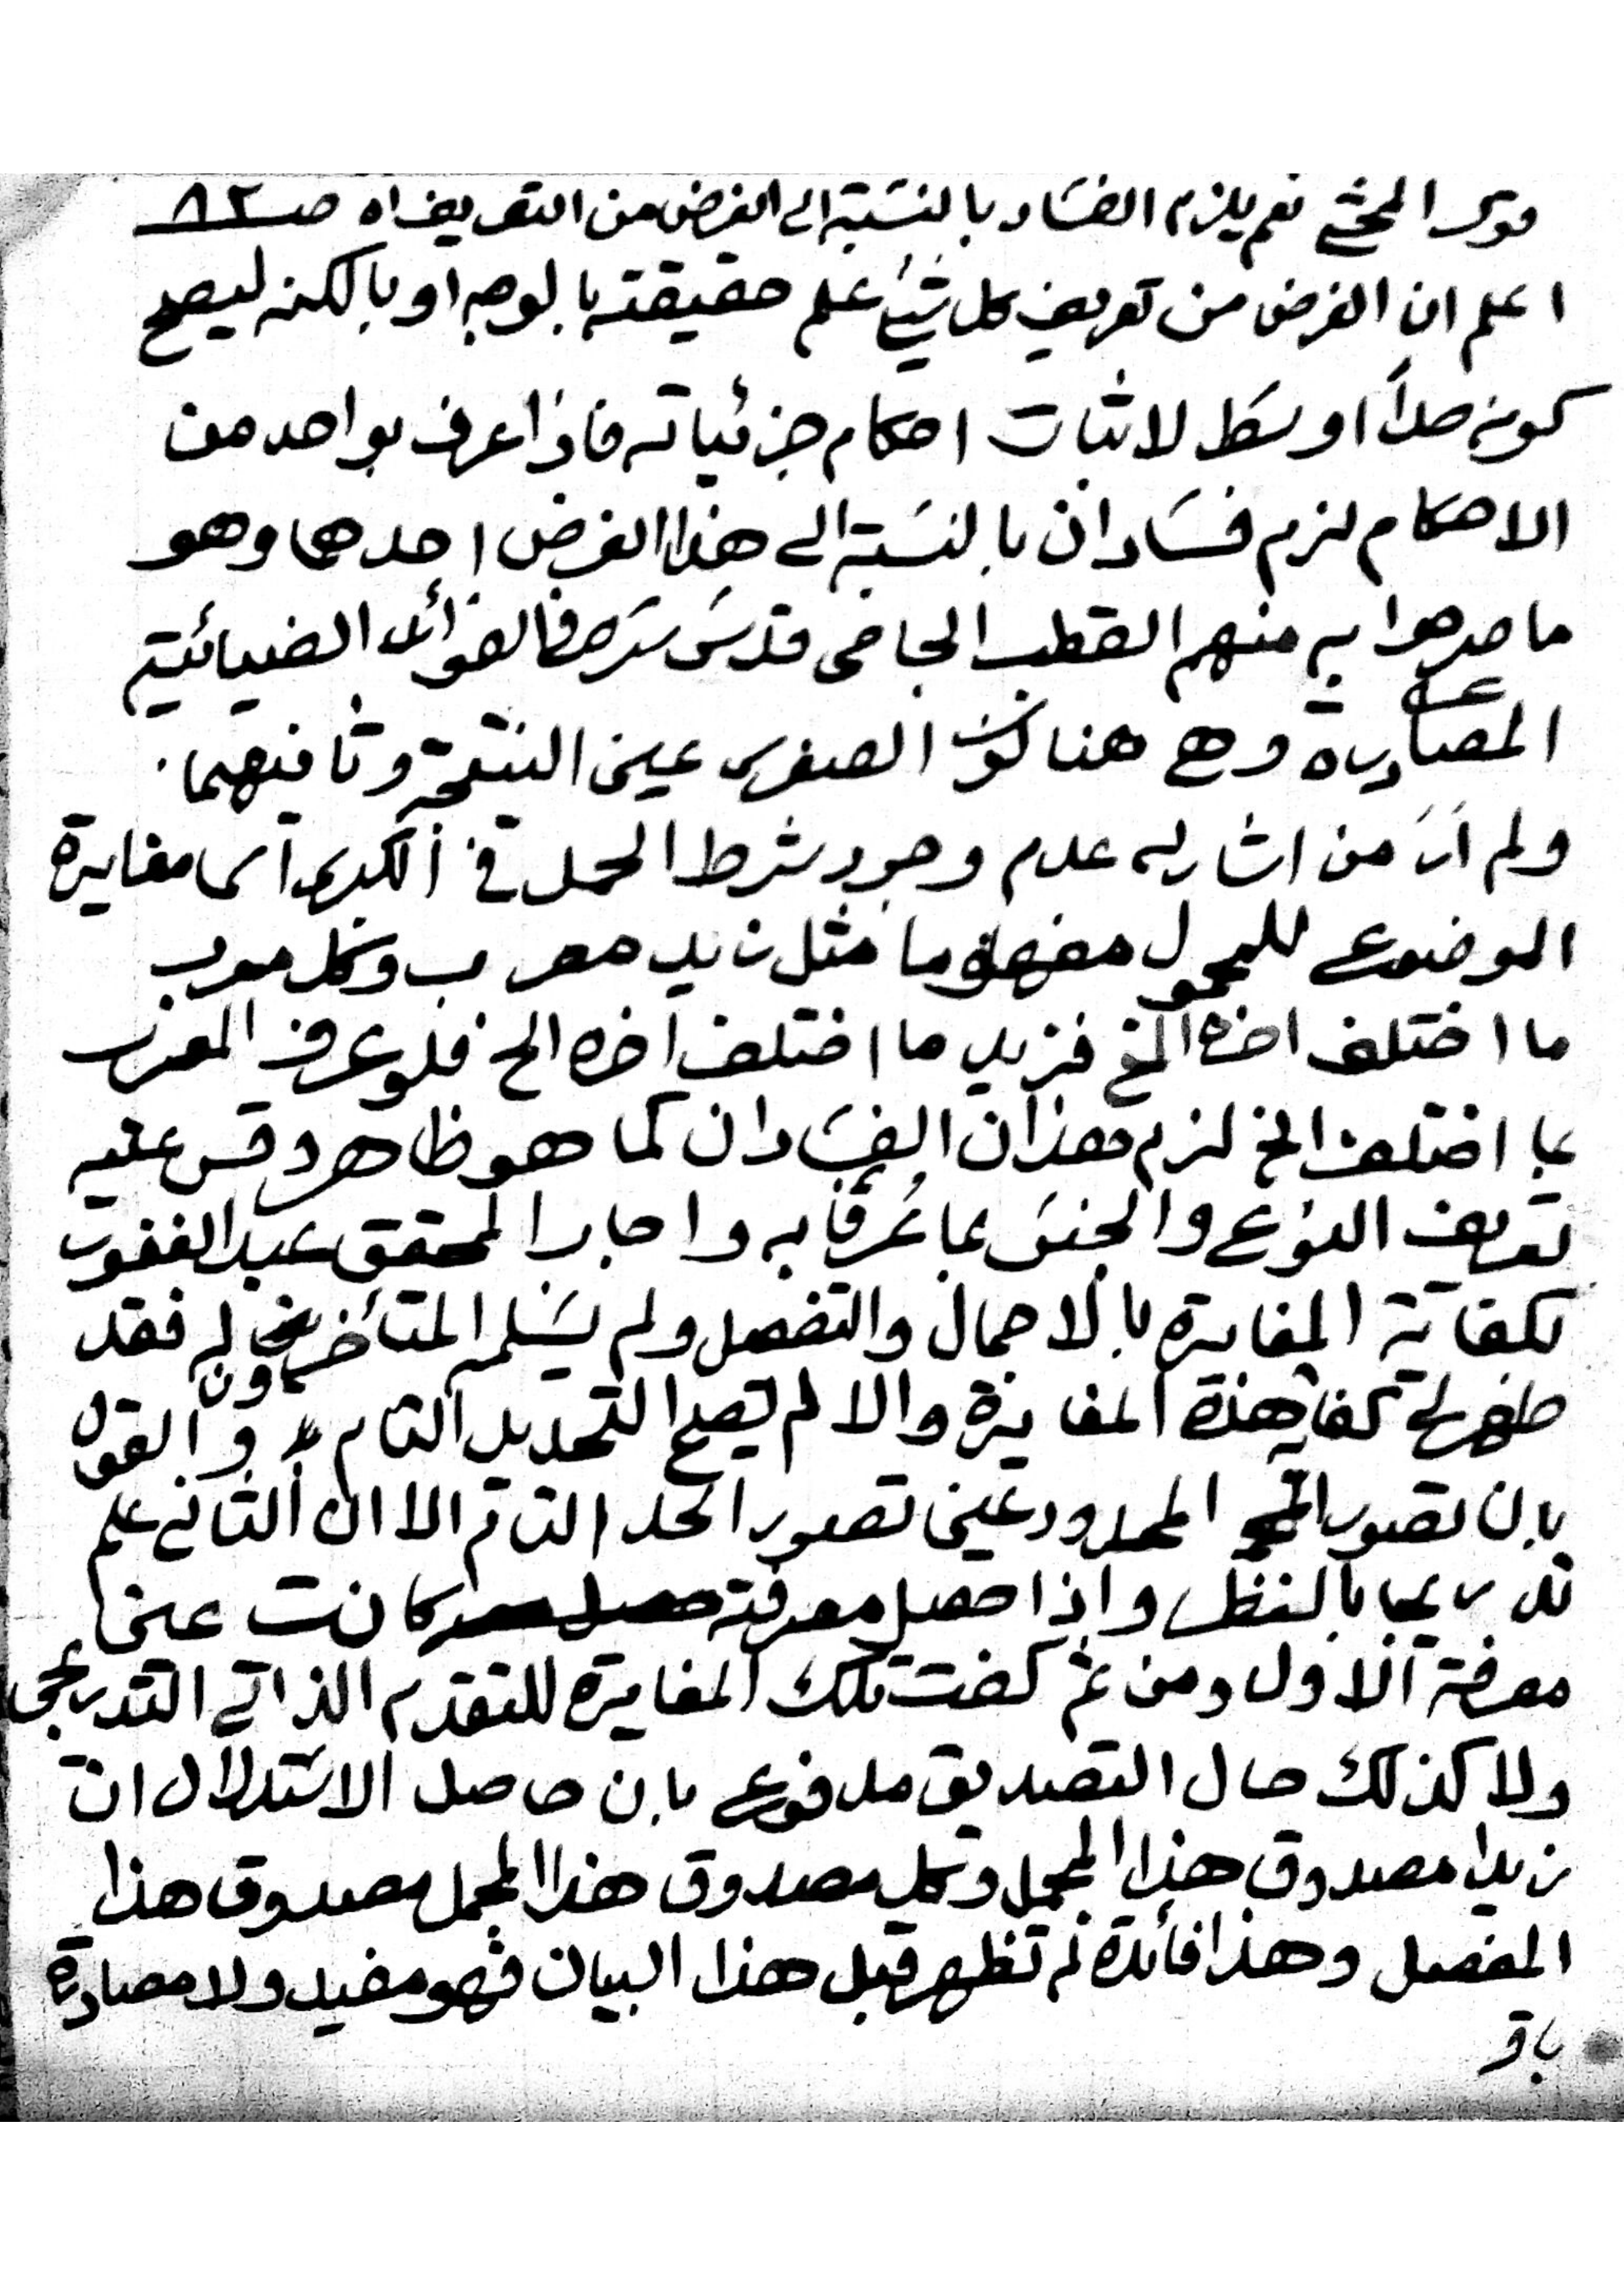 قول المحشي نعم يلزم الفساد بالنسبة الى الغرض من التعريف اه صـ ٨٢
اعلم ان الغرض من تعريف كل شئ علم حقيقته بالوجه او بالكنه ليصح
كونه حداً اوسط لاثبات احكام جزئياته فاذا عرف بواحد من
الاحكام لزم فسادان بالنسبة الى هذا الغرض احدهما وهو
ما صرحوا به منهم القطب الجامى قدس سره فى الفوائد الضيائية
المصادرة وهى هنا كون الصغرى عين النتيجة وثانيهما
ولم أرَ من اشار له عدم وجود شرط الحمل في الكبرى اى مغايرة
الموضوع للمحمول مفهوما مثل زيد معرب وكل معرب
ما اختلف اخره الخ فزيد ما اختلف اخره الخ فلو عرف المعرب
بما اختلف الخ لزم هذان الفسادان كما هو ظاهر وقس عليه
تعريف النوع والجنس بما عُرِّفا به واجاب المحقق عبد الغفور
بكفاية المغايرة بالاجمال والتفصيل ولم يسلمه المتأخرون له فقد
ظهر لى كفاية هذه المغايرة والا لم يصح التحديد التام و القول
بان تصور المحدود عين تصور الحد التام الا ان الثانى علم
تدريجا بالنظر واذا حصل معرفته كانت عين
معرفة الاول ومن ثم كفت تلك المغايرة للتقدم الذاتي التدريجى
ولا كذلك حال التصديق مدفوع بان حاصل الاستدلال ان
زيدا مصدوق هذا المجمل وكل مصدوق هذا المجمل مصدوق هذا
المفصل وهذا فائدة لم تظهر قبل هذا البيان فهو مفيد ولا مصادرة
باق